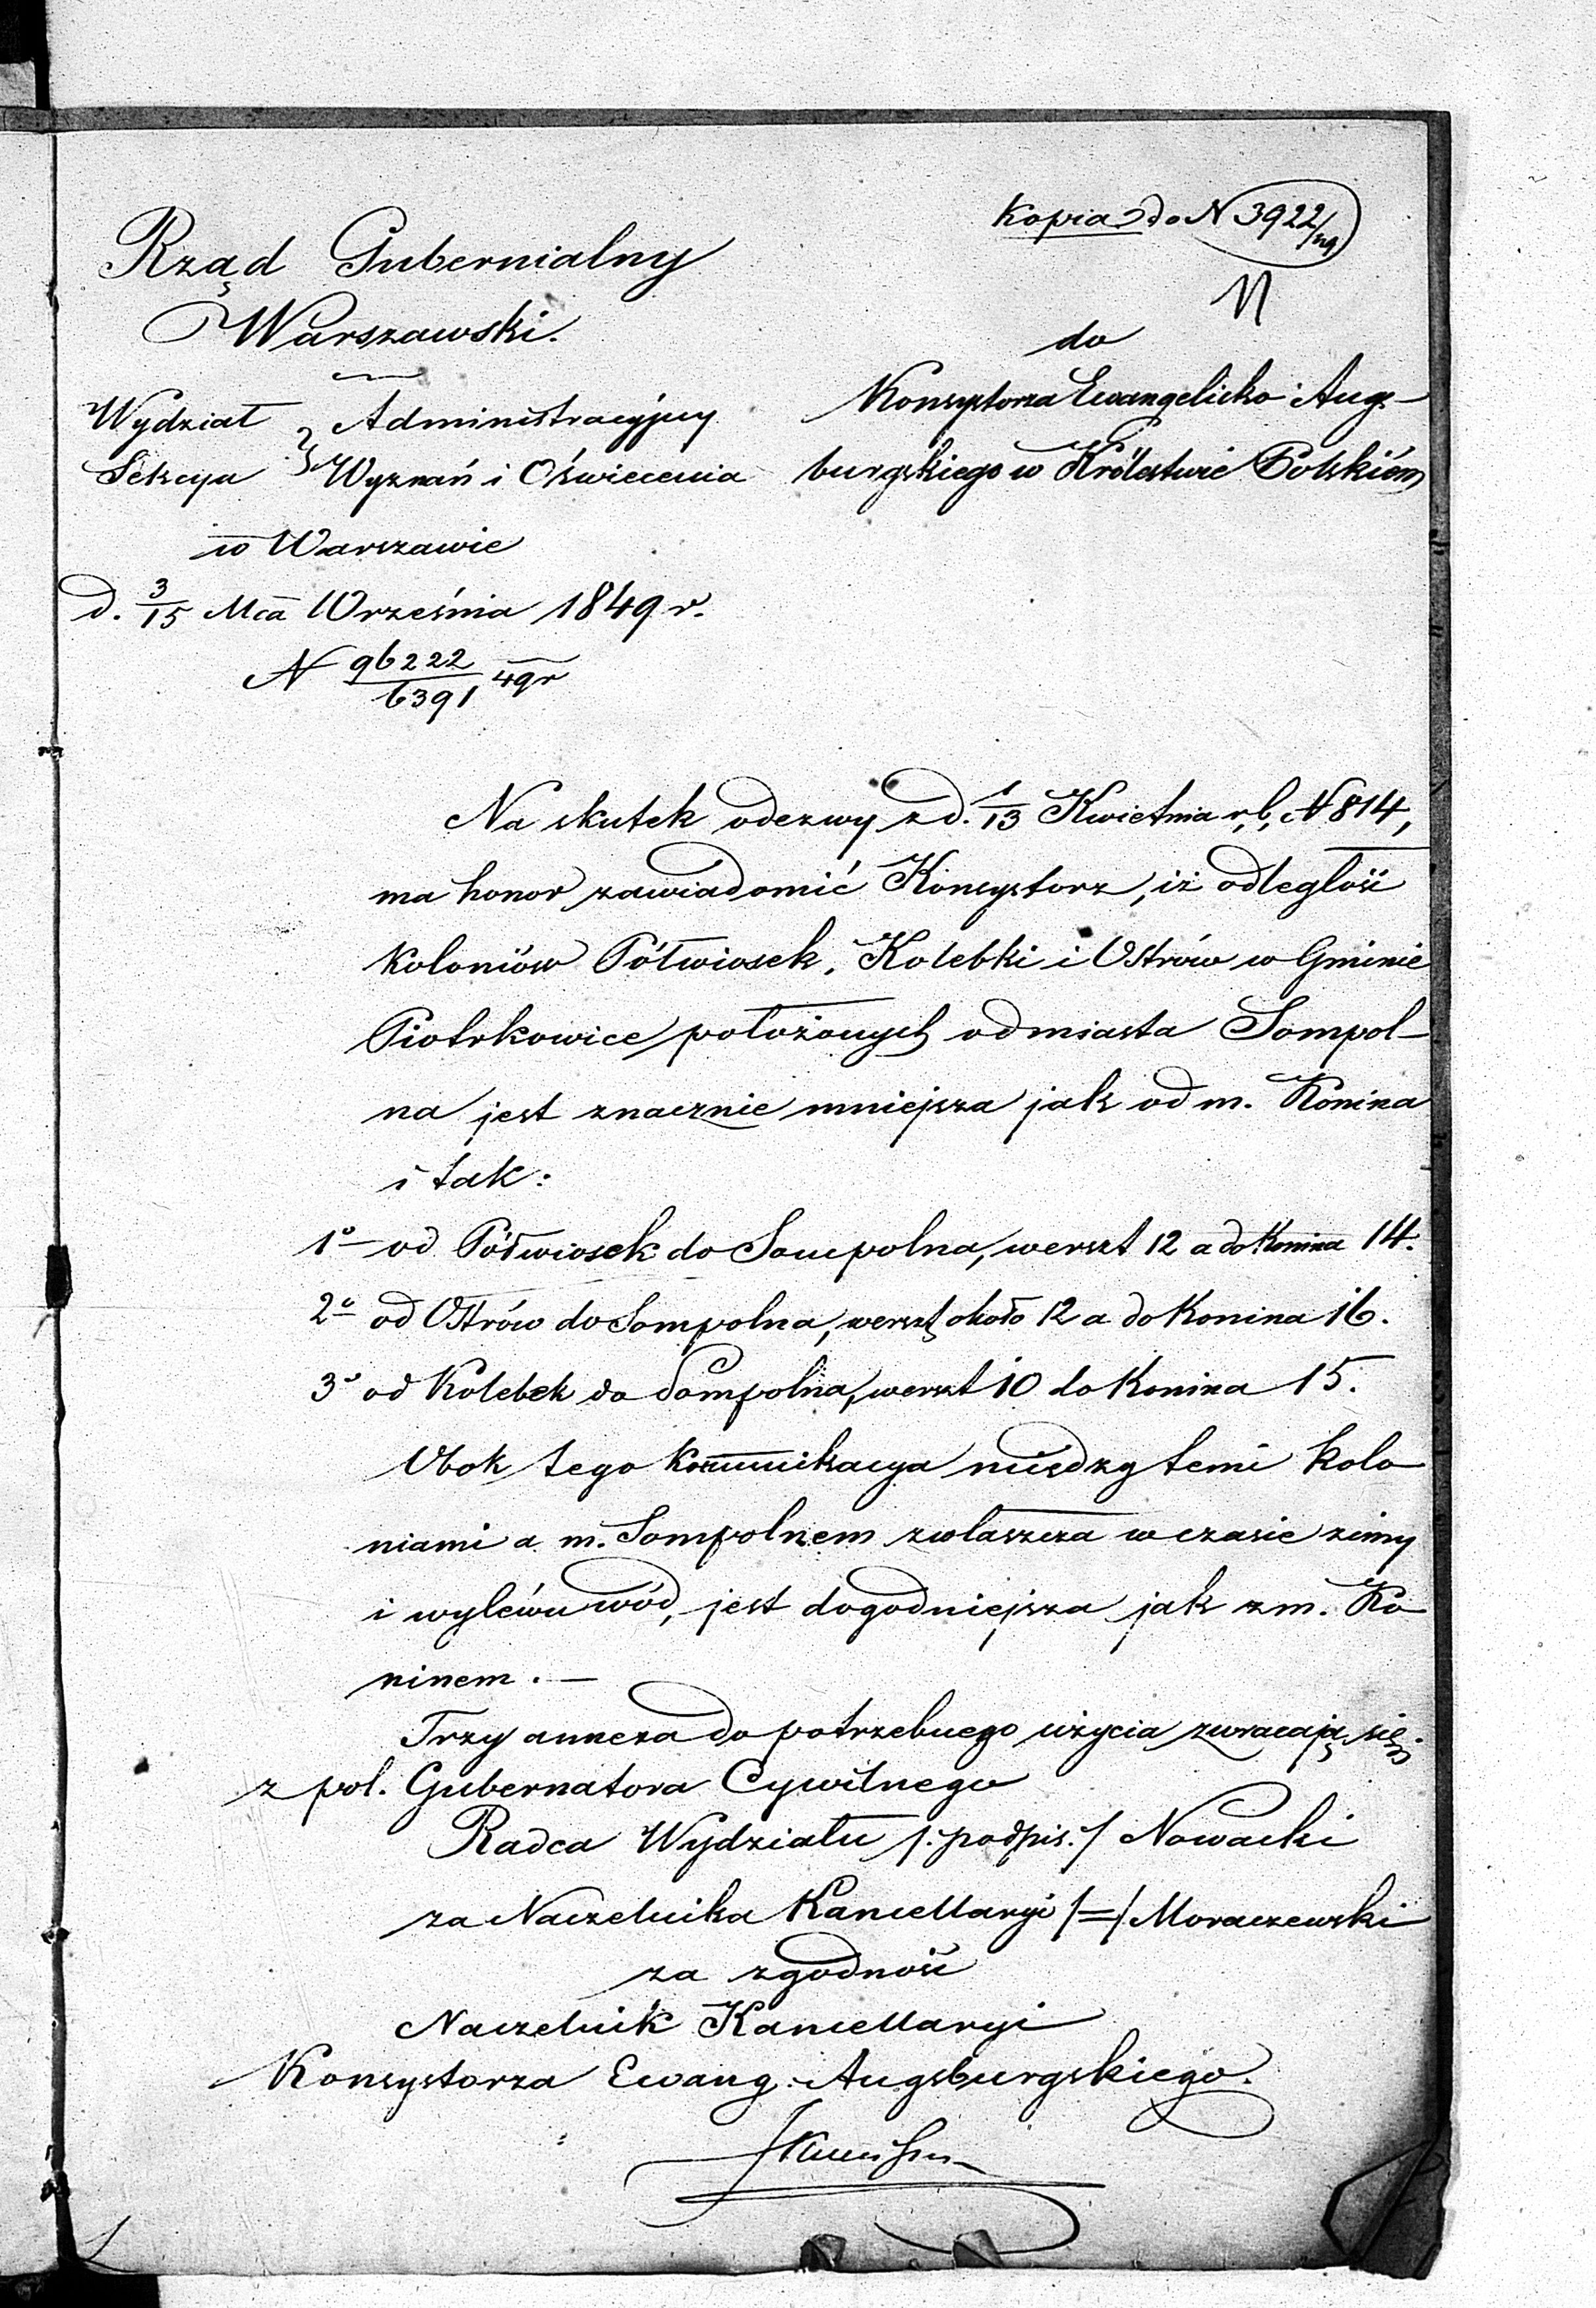 Kopia do N 3922/49
Rząd Gubernialny
Warszawski.
Wydział Administracyjny
Sekcya Wyznań i Oświecenia
w Warszawie
d. 3/15 Mca Września 1849 r.
N 96222/6391 49r
do
Konsystorza Ewangelicko Augs-
burgskiego w Królestwie Polskiém
Na skutek odezwy z d. 1/13 Kwietnia r. b. N 814,
ma honor zawiadomić Konsystorz, iż odległość
koloniów Półwiosek, Kolebki i Ostrów w Gminie
Piotrkowice położonych od miasta Sompol-
na jest znacznie mniejsza jak od m. Konina
i tak:
1o od Półwiosek do Sompolna, werszt 12 a do Konina 14.
2o od Ostrów do Sompolna, werszt około 12 a do Konina 16.
3o od Kolebek do Sompolna, werszt 10 do Konina 15.
Obok tego kommunikacya między temi kolo
niami a m. Sompolnem zwłaszcza w czasie zimy
i wyléwu wód, jest dogodniejsza jak z m. Ko
ninem. —
Trzy annexa do potrzebnego użycia zwracają się.
z pol. Gubernatora Cywilnego
Radca Wydziału /. podpis. / Nowacki
za Naczelnika Kancellaryi /=/ Moraczewski
za zgodność
Naczelnik Kancellaryi
Konsystorza Ewang. Augsburgskiego.